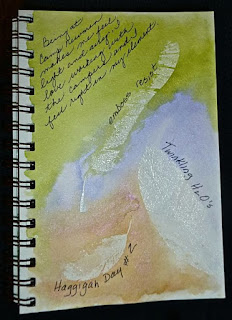 Being at
Camp Newman
makes me feel
light and airy. I
love creating with
the campers and I
feel right in my element
emboss resist
Twinkling H2O's
Haggigah Day #2